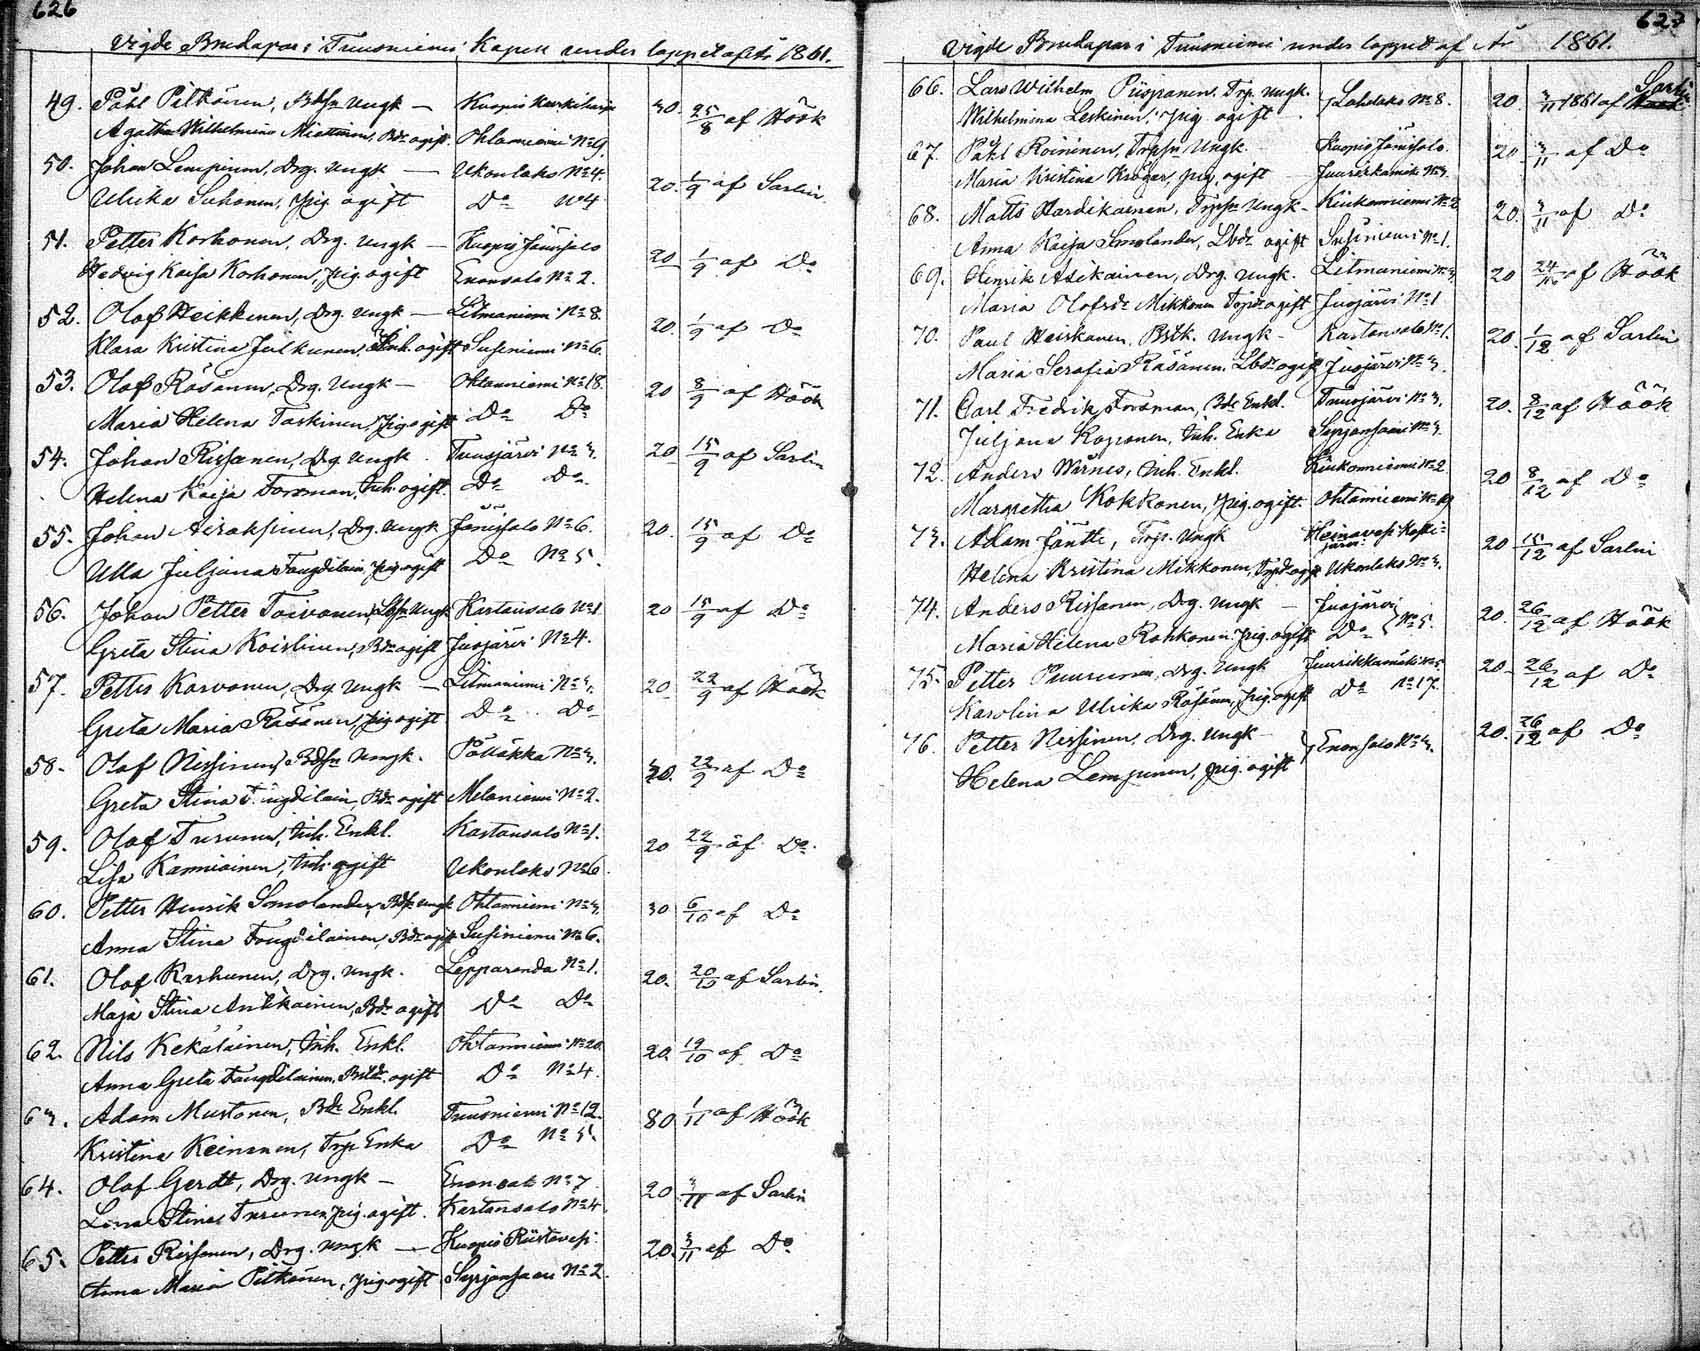 626
Vigde Brudapar i Tuusniemi Kapell under loppet af År 1861.
49. Påhl Pitkänen, Bdsn Ungk — Kuopio Kurkiharju 30. 25/8 af Höök
Agatha Wilhelmina Miettinen, Bdr ogift. Ohtaniemi No 9.
50. Johan Lempinen, Drg. Ungk — Ukonlaks No 4. 20. 1/9 af Sarlin.
Ulrika Suhonen, Pig ogift Do No 4
51. Petter Korhonen, Drg. Ungk — Kuopio Jänissalo 20 1/9 af Do
Hedvig Kaisa Korhonen, Pig. ogift Enonsalo No 2.
52. Olof Heikkinen, Drg. Ungk — Litmaniemi No 8. 20. 1/9 af Do
Klara Kristina Julkunen, Inh. ogift Susiniemi No 6.
53. Olof Räsänen, Drg. Ungk — Ohtaniemi No 18. 20 8/9 af Höök
Maria Helena Taskinen, Pig ogift Do Do
54. Johan Rissanen, Drg Ungk. Tuusjärvi No 3. 20 15/9 af Sarlin
Helena Kaija Forsman, Inh. ogift. Do Do
55. Johan Airaksinen, Drg. Ungk Jänissalo No 6. 20. 15/9 af Do
Ulla Juljana Faugdilain, Pig ogift Do No 5.
56. Johan Petter Toivanen, Ungk Kartansalo No 1 20 15/9 af Do
Greta Stina Koistinen, Bdr ogift Juojärvi No 4.
57. Petter Karvonen, Drg. Ungk — Litmaniemi No 3. 20. 22/9 af Höök
Greta Maria Räsänen, Pig ogift Do Do
58. Olof Nissinen, Bdsn Ungk. Pölläkkä No 3. 20. 22/9 af Do
Greta Stina Faugdilain, Bdr ogift Melaniemi No 2.
59. Olof Turunen, Inh. Enkl. Kartansalo No 1. 20 22/9 af Do.
Lisa Kanniainen, Inh. ogift Ukonlaks No 6
60. Petter Henrik Smolander, Bdsn Ungk Ohtaniemi No 3. 30 6/10 af Do
Anna Stina Faugdilainen, Bdr ogift Susiniemi No 6.
61. Olof Karhunen, Drg. Ungk. Lepparanda No 1. 20. 20/10 af Sarlin.
Maja Stina Antikainen, Bdr ogift Do Do
62. Nils Kekäläinen, Inh. Enkl. Ohtaniemi No 20. 20. 19/10 af Do
Anna Greta Faugdilainen, ogift Do No 4.
63. Adam Mustonen, Bde Enkl. Tuusniemi No 12. 80. 1/11 af Höök
Kristina Keinänen, Trp. Enka Do No 5.
64. Olof Gerdt, Drg. Ungk — Enonsalo No 7 20 3/11 af Sarlin
Lena Stina Turunen, Pig. ogift. Kartansalo No 4.
65. Petter Rissanen, Drg. Ungk — Kuopio Riistavesi 20. 3/11 af Do
Anna Maria Pitkänen, Pig. ogift Syrjänsaari No 2.
627
Vigde Brudapar i Tuusniemi under loppet af År 1861.
66. Lars Wilhelm Piispanen, Trp. Ungk. } Lahdlaks No 8. 20. 3/11 1861 af Sarlin
Wilhelmina Leskinen, Pig ogift
67. Påhl Roininen, Trpsn Ungk. Kuopio Jänissalo. 20 3/11 af Do
Maria Kristina Kröger, Pig, ogift — Juurikkamäki No 3.
68. Matts Hardikainen, Trpsn Ungk — Kiukoniemi No 2 20. 3/11 af Do
Anna Kaisa Smolander, Lbdr ogift Susiniemi No 1.
69. Henrik Asikainen, Drg. Ungk. Litmaniemi No 3. 20 24/11 af Höök
Maria Olofsdr Mikkonen ogift Juojärvi No 1
70. Paul Heiskanen, Bdk. Ungk — Kartansalo No 1. 20. 1/12 af Sarlin
Maria Serafia Räsänen, Lbdr ogift Juojärvi No 3.
71. Carl Fredrik Forsman, Bde Enkl. Tuusjärvi No 3. 20. 8/12 af Höök
Juljana Koponen, Inh. Enka Syrjänsaari No 3.
72. Anders Wärnes, Inh. Enkl. Kiukoniemi No 2 20 8/12 af Do
Margretha Kokkonen, Pig. ogift. Ohtaniemi No 19
73. Adam Jäntti, Trp. Ungk Heinävesi Kossijärvi 20 15/12 af Sarlin
Helena Kristina Mikkonen, ogift Ukonlaks No 3.
74. Anders Rissanen, Drg. Ungk — Juojärvi } No 5. 20. 26/12 af Höök
Maria Helena Rohkonen, Pig. ogift Do
75. Petter Puurunen, Drg. Ungk Juurikkamäki No 5. 20. 26/12 af Do
Karolina Ulrika Räsänen, Pig. ogift Do No 17.
76. Petter Nissinen, Drg. Ungk — } Enonsalo No 3. 20. 26/12 af Do
Helena Lempinen, Pig. ogift